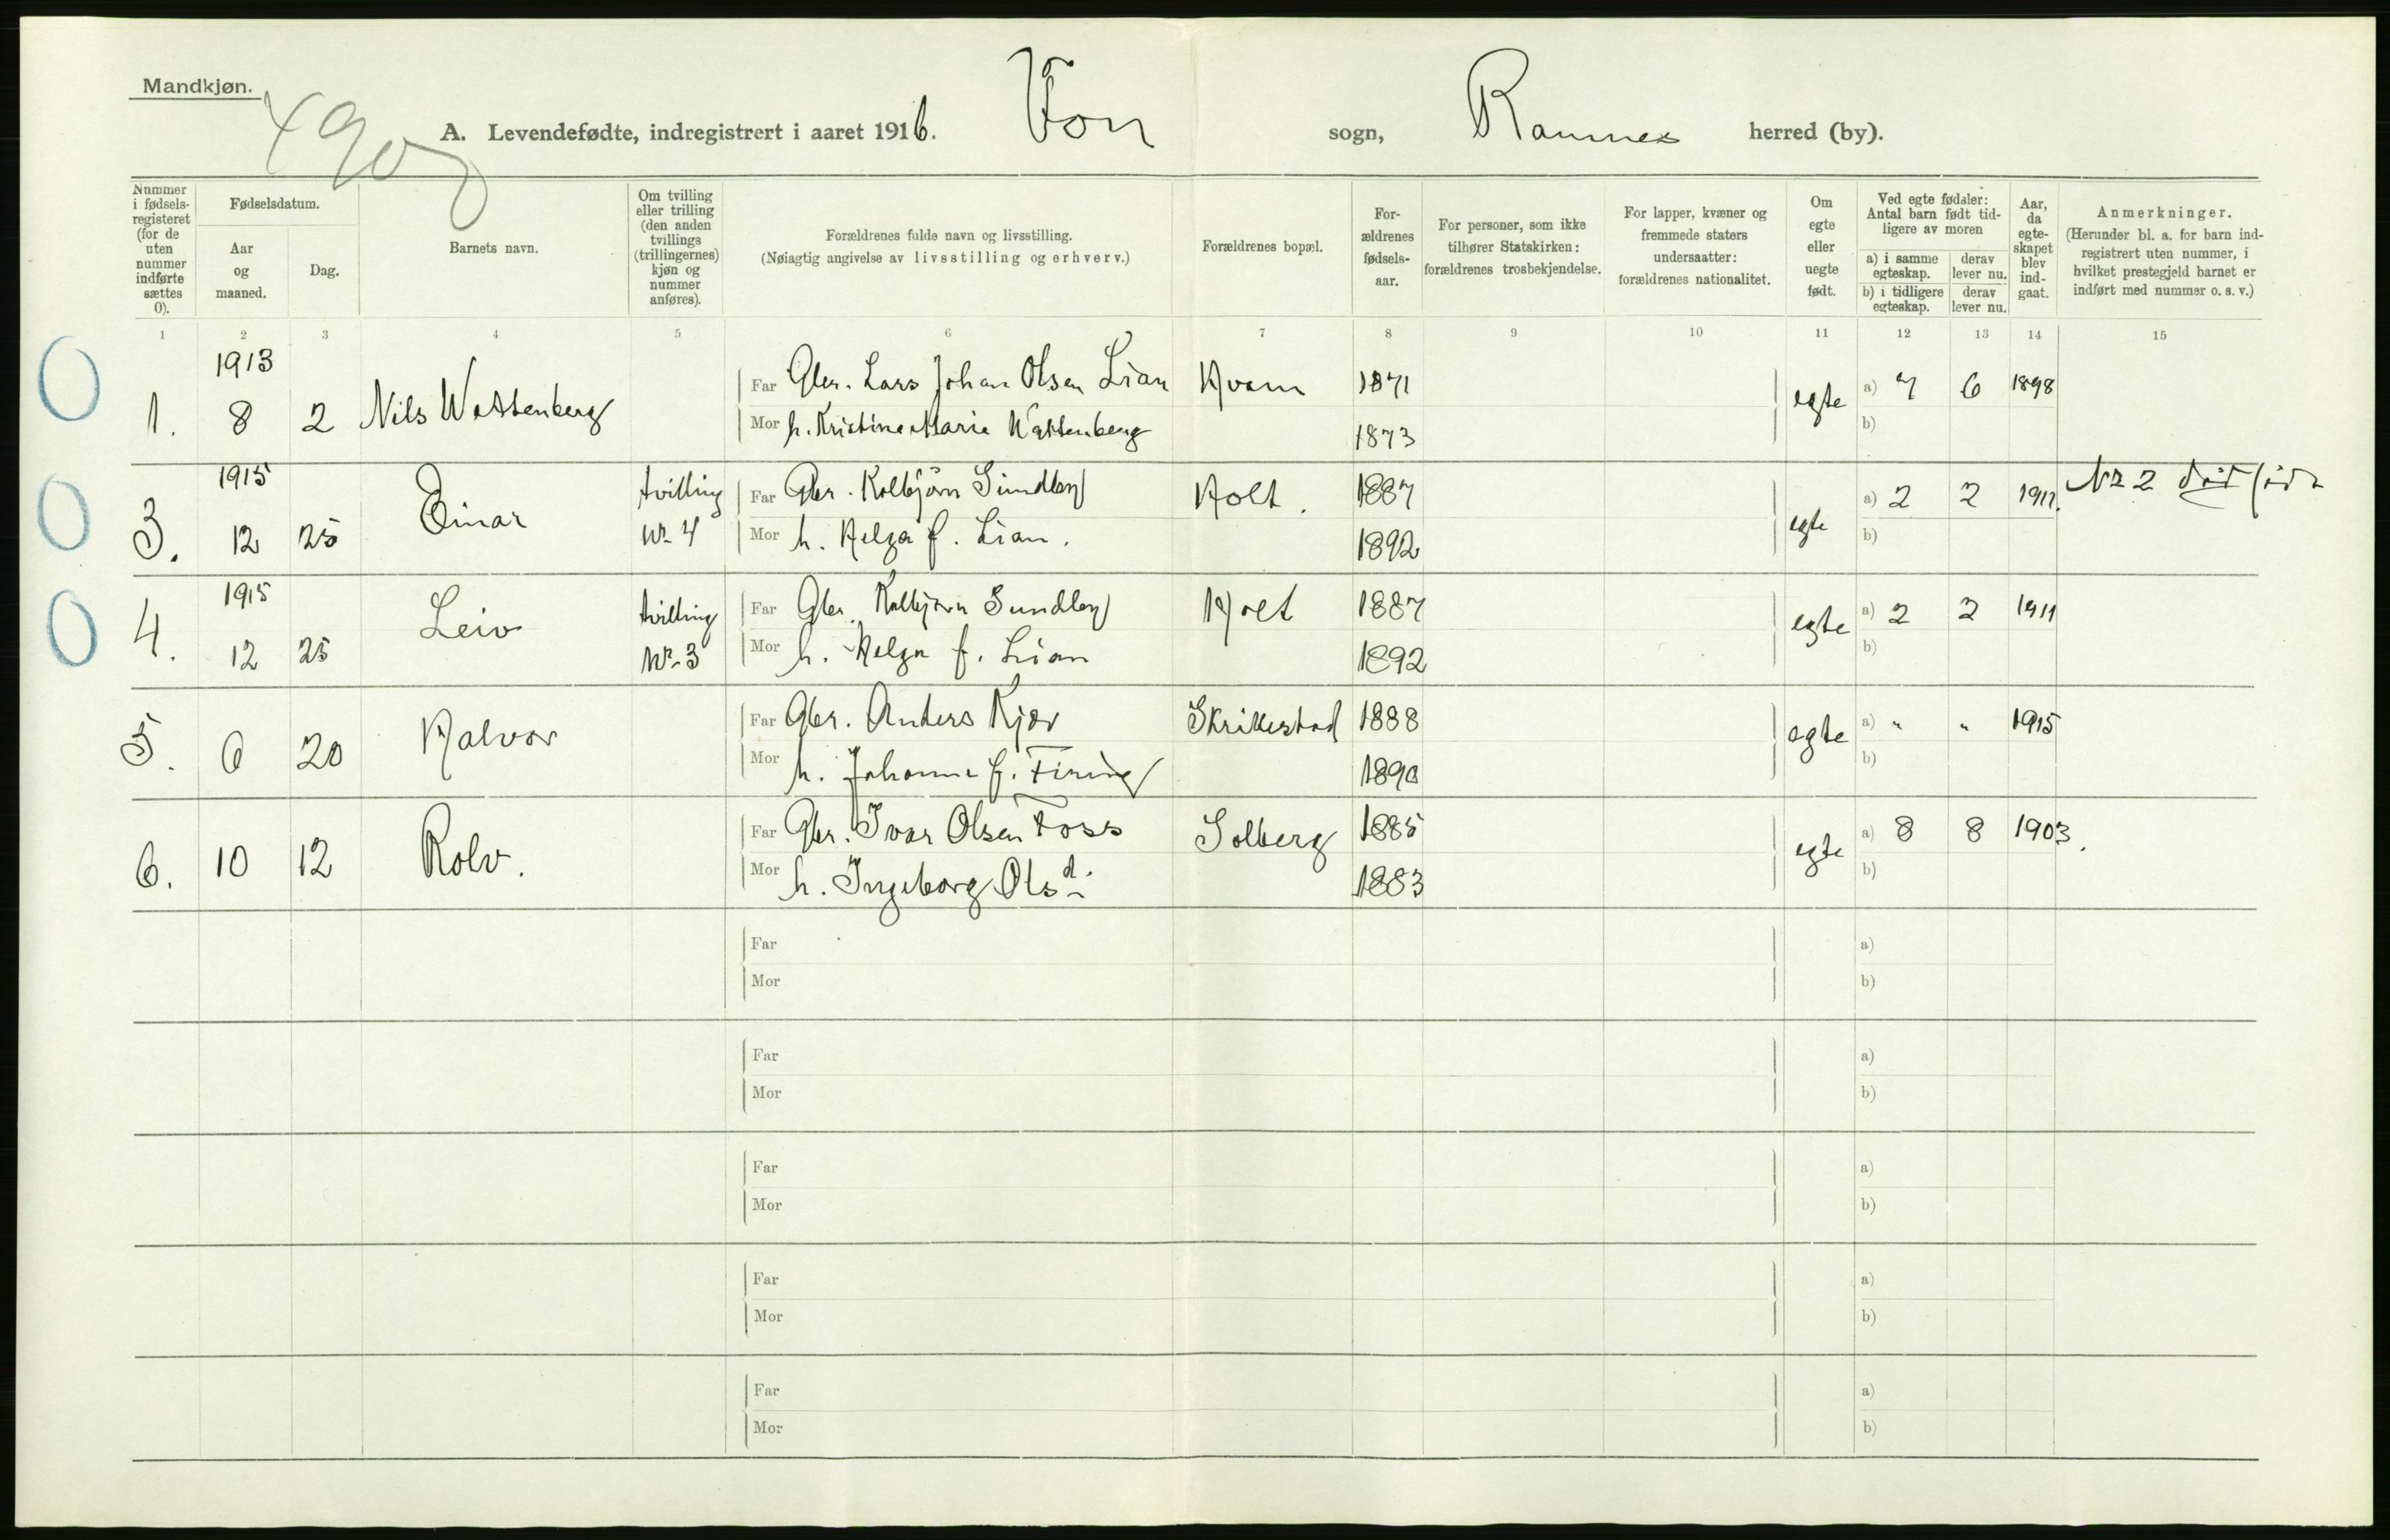 Mandkjøn.
A. Levendefødte, indregistrert i aaret 1916. Fon sogn, Ramnes herred (by).
Nummer i fødsels-registeret (for de uten nummer indførte sættes 0).
Fødselsdatum.
Aar og maaned.
Dag.
Barnets navn.
Om tvilling eller trilling (den anden tvillings (trillingernes) kjøn og nummer anføres).
Forældrenes fulde navn og livsstilling.
(Nøiagtig angivelse av livsstilling og erhverv.)
Forældrenes bopæl.
For-ældrenes fødsels-aar.
For personer, som ikke tilhører Statskirken: forældrenes trosbekjendelse.
For lapper, kvæner og fremmede staters undersaatter: forældrenes nationalitet.
Om egte eller uegte født.
Ved egte fødsler: Antal barn født tid-ligere av moren
a) i samme egteskap.
derav lever nu.
b) i tidligere egteskap.
derav lever nu.
Aar, da egte-skapet blev ind-gaat.
Anmerkninger.
(Herunder bl. a. for barn ind-registrert uten nummer, i hvilket prestegjeld barnet er indført med nummer o. s. v.)
1 2 3 4 5 6 7 8 9 10 11 12 13 14 15
0 1913
1. 8 2 Nils Wattenberg Far Gbr. Lars Johan Olsen Lian Kvam 1871 egte a) 7 6 1898
Mor h. Kristine Marie Wattenberg 1873 b)
0 1915
3. 12 25 Einar tvilling Nr. 4 Far Gbr. Kolbjørn Sundby Holt. 1887 egte a) 2 2 1911. Nr 2 dødfødt
Mor h. Helga f. Lian. 1892 b)
0 1915
4. 12 25 Leiv tvilling Nr. 3 Far Gbr. Kolbjørn Sundby Holt 1887 egte a) 2 2 1911
Mor h. Helga f. Lian 1892 b)
5. 6 20 Halvor Far Gbr. Anders Kjær Skrikestad 1888 egte a) " " 1915
Mor h. Johanne f. Firing 1890 b)
6. 10 12 Rolv. Far Gbr. Ivar Olsen Foss Solberg 1885 egte a) 8 8 1903.
Mor h. Ingeborg Olsd. 1883 b)
Far a)
Mor b)
Far a)
Mor b)
Far a)
Mor b)
Far a)
Mor b)
Far a)
Mor b)